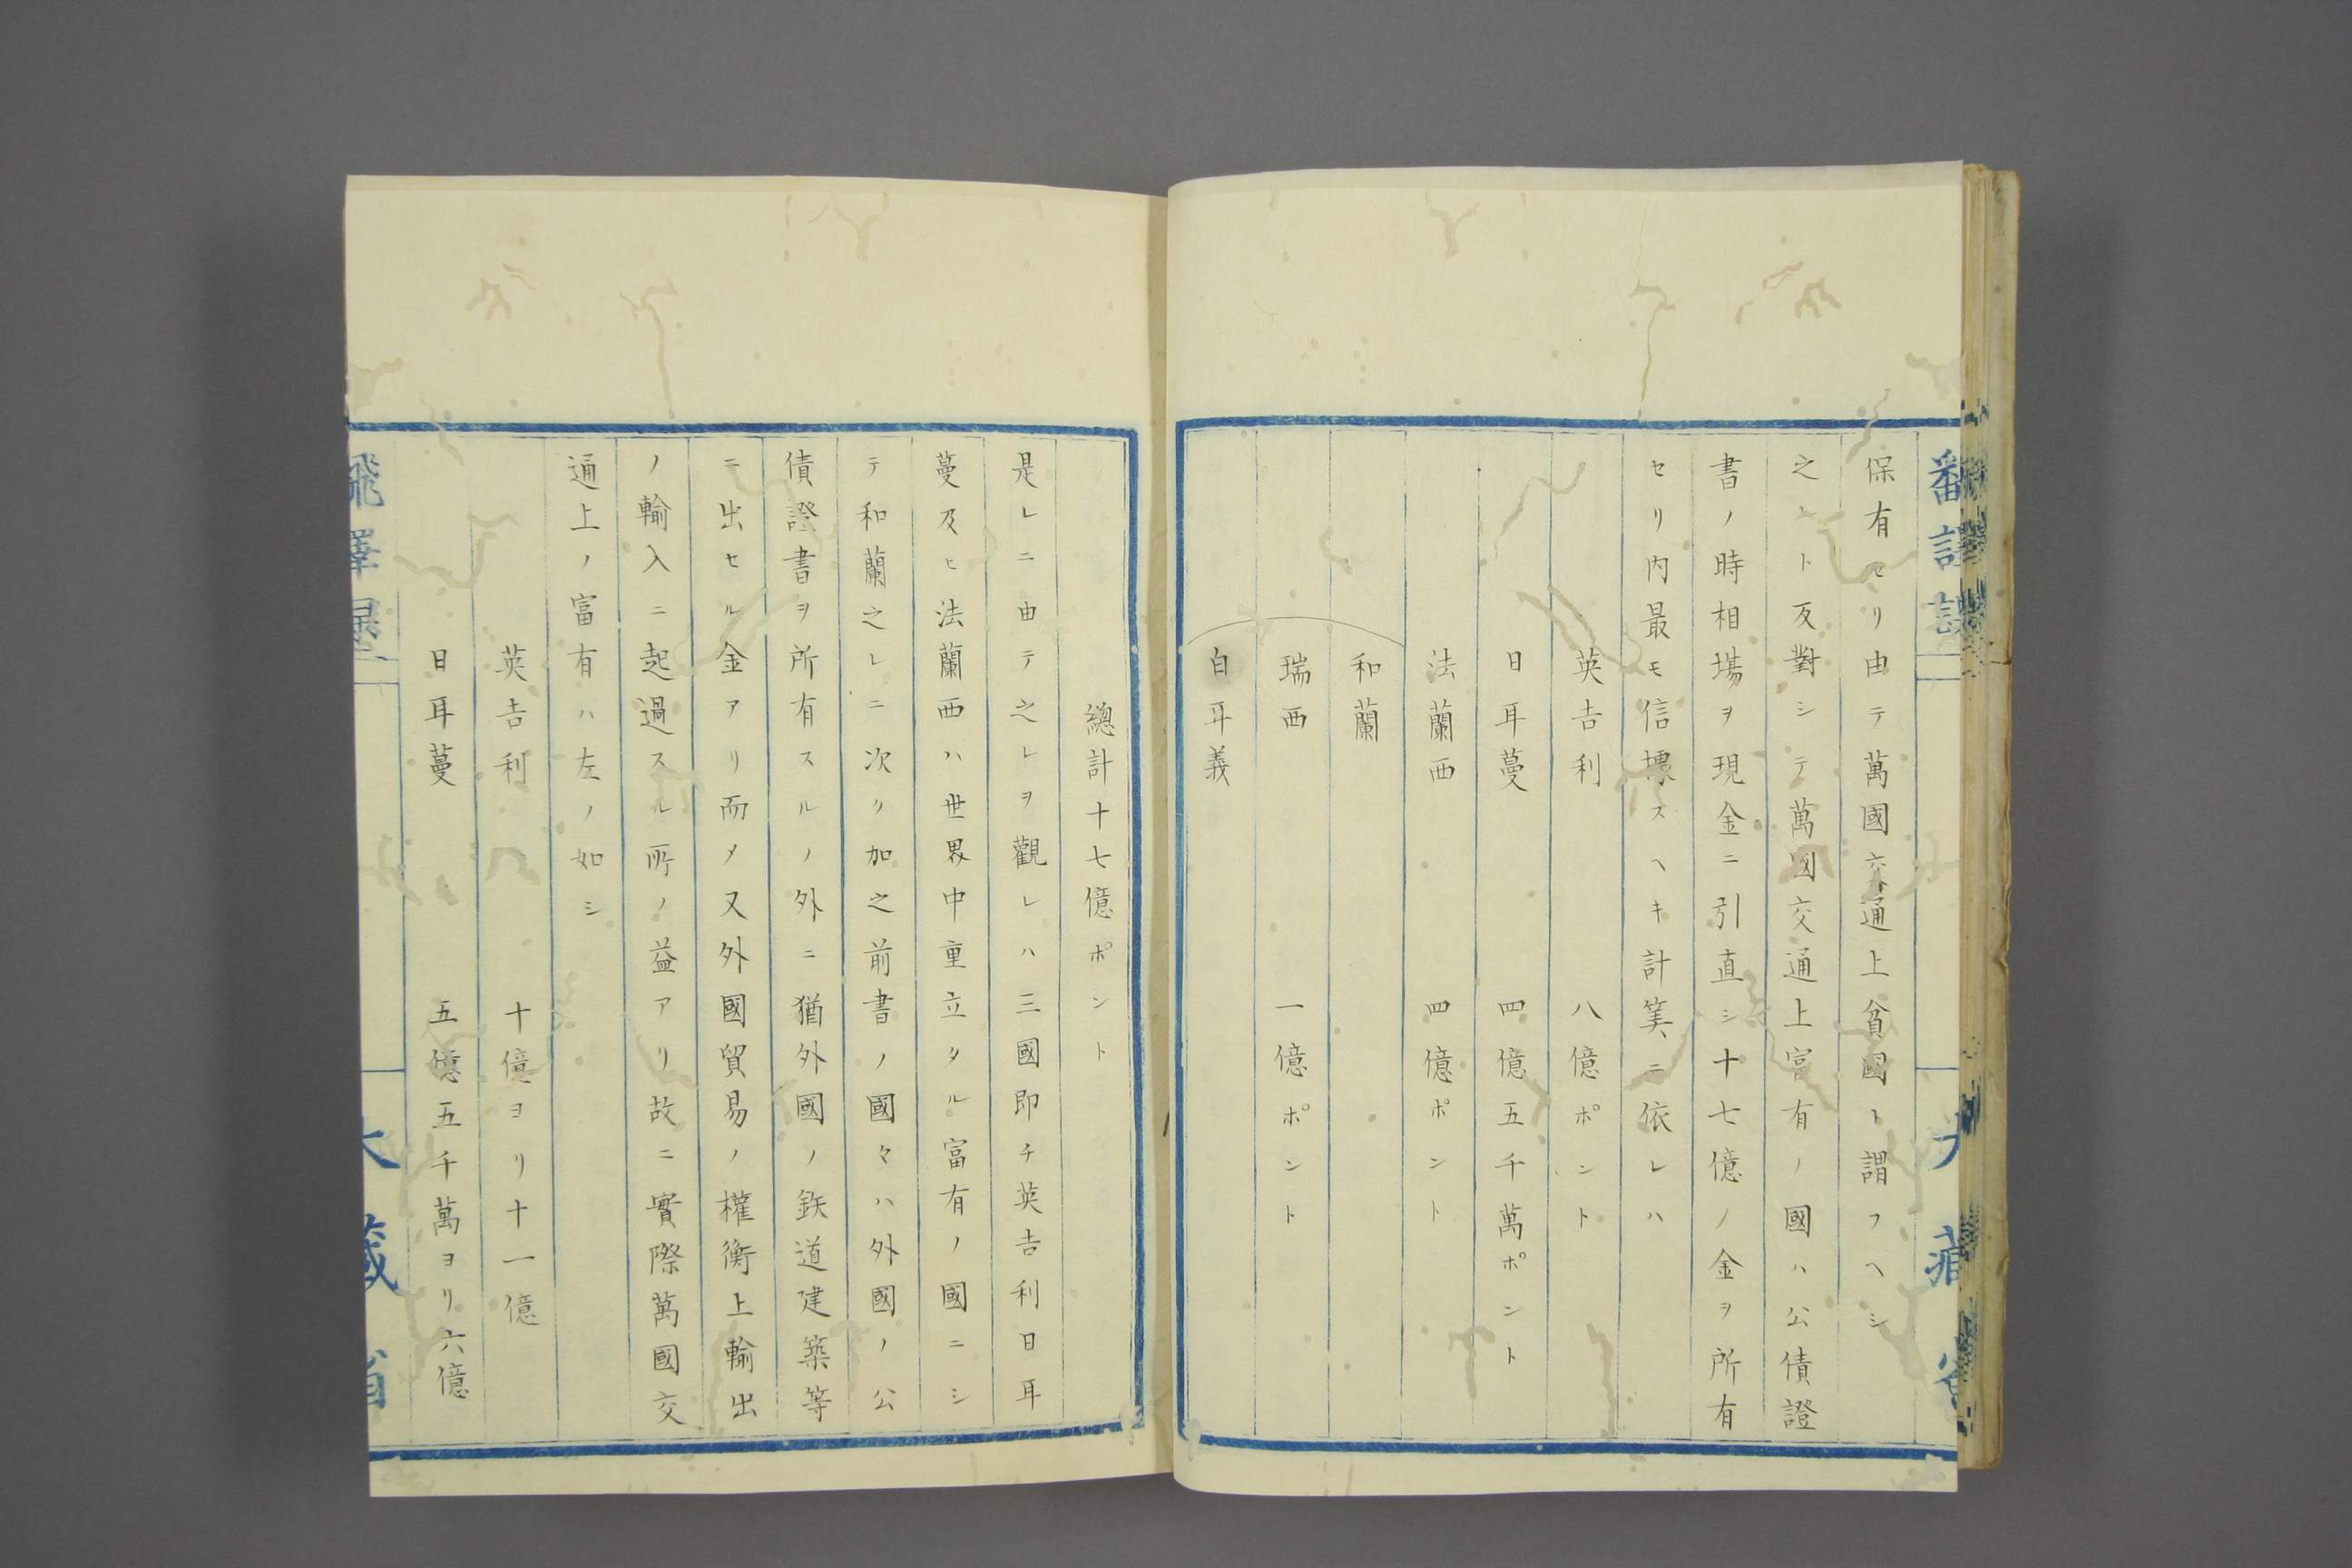 保有セリ由テ萬國交通上貧國ト謂フヘシ
之レト反對シテ萬國交通上富有ノ國ハ公債證
書ノ時相場ヲ現金ニ引直シ十七億ノ金ヲ所有
セリ内最モ信憑スヘキ計筭ニ依レハ
英吉利 八億ポント
日耳蔓 四億五千萬ポント
法蘭西 四億ポント
和蘭
瑞西 一億ポント
白耳義
總計十七億ポント
是レニ由テ之レヲ觀レハ三國即チ英吉利日耳
蔓及ヒ法蘭西ハ世界中重立タル富有ノ國ニシ
テ和蘭之レニ次リ加之前書ノ國々ハ外國ノ公
債證書ヲ所有スルノ外ニ猶外國ノ鉄道建築等
ニ出セル金アリ而メ又外國貿易ノ權衡上輸出
ノ輸入ニ起過スル所ノ益アリ故ニ實際萬國交
通上ノ富有ハ左ノ如シ
英吉利 十億ヨリ十一億
日耳蔓 五億五千萬ヨリ六億
大藏省